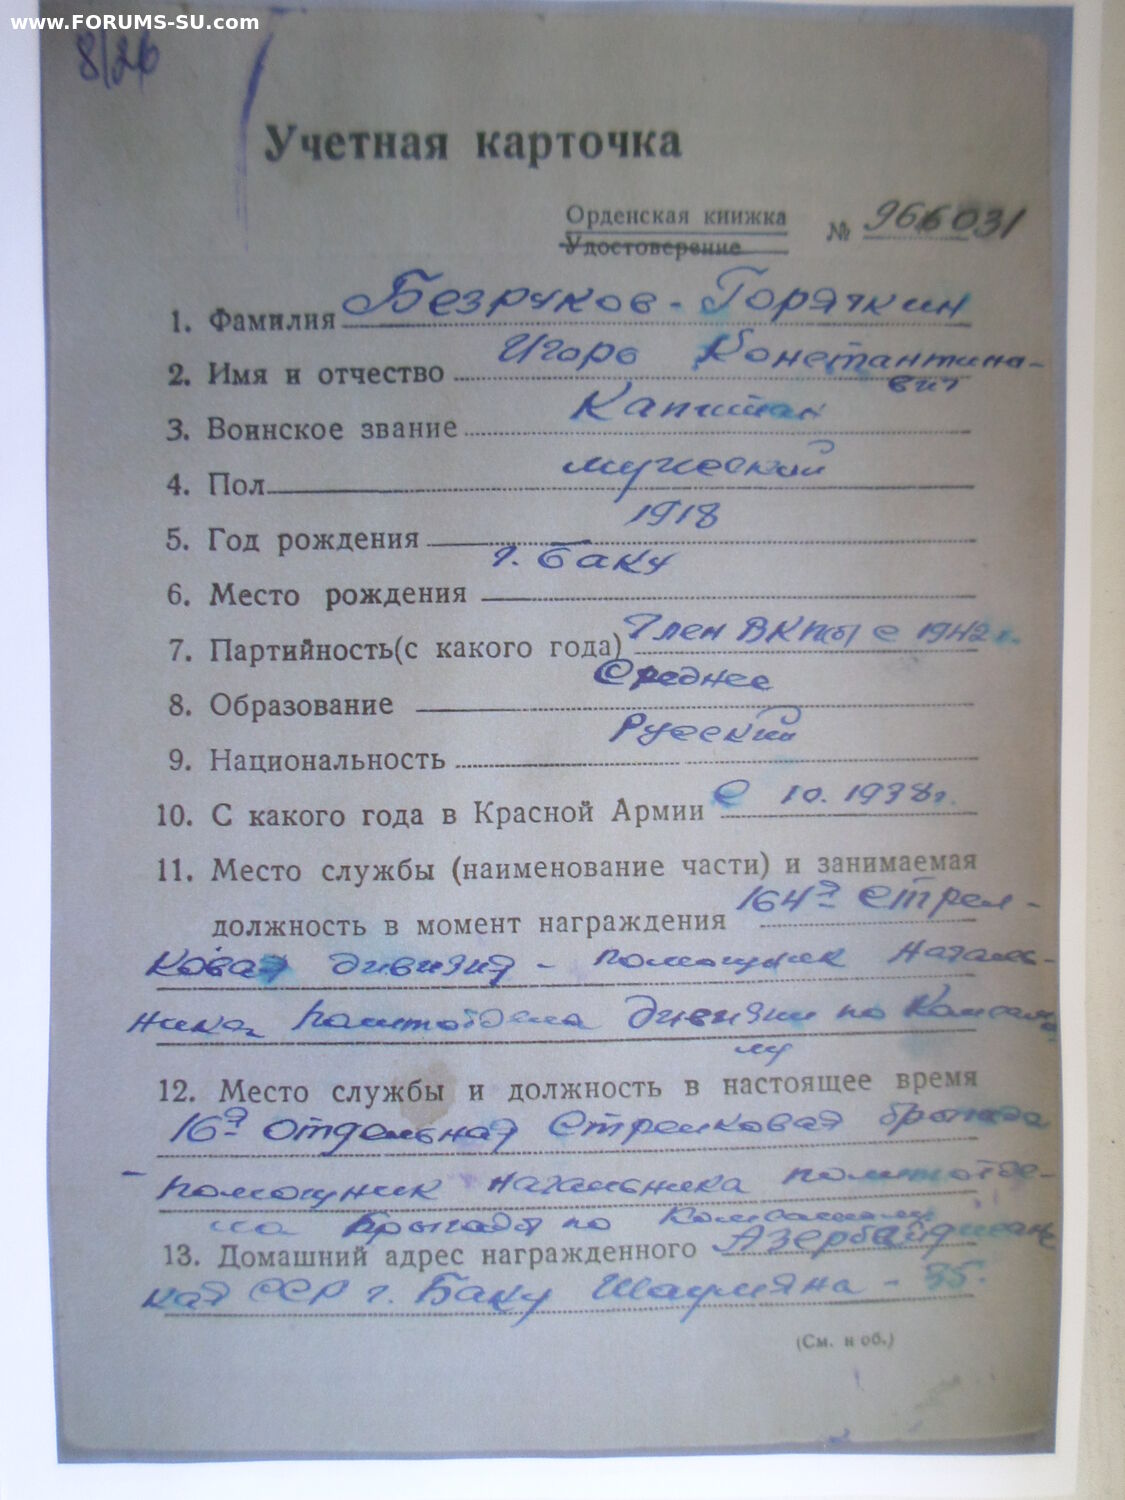 www.FORUMS-SU.com
8/26
Учетная карточка
Орденская книжка
Удостоверение
№ 966031
1. Фамилия Безруков-Горячкин
2. Имя и отчество Игорь Константино-
вич
3. Воинское звание Капитан
4. Пол мужской
5. Год рождения 1918
6. Место рождения г. Баку
7. Партийность(с какого года) Член ВКП(б) с 1942 г.
8. Образование Среднее
9. Национальность Русский
10. С какого года в Красной Армии С 10. 1938г.
11. Место службы (наименование части) и занимаемая
должность в момент награждения 164я Стрел-
ковая дивизия - помощник началь-
ника политотдела дивизии по Комсомо
лу
12. Место службы и должность в настоящее время
16я отдельная Стрелковая бригада
- помощник начальника политотде-
ла бригады по Комсомолу
13. Домашний адрес награжденного Азербайджанс
кая ССР г. Баку Шаумяна - 35.
(См. н об.)